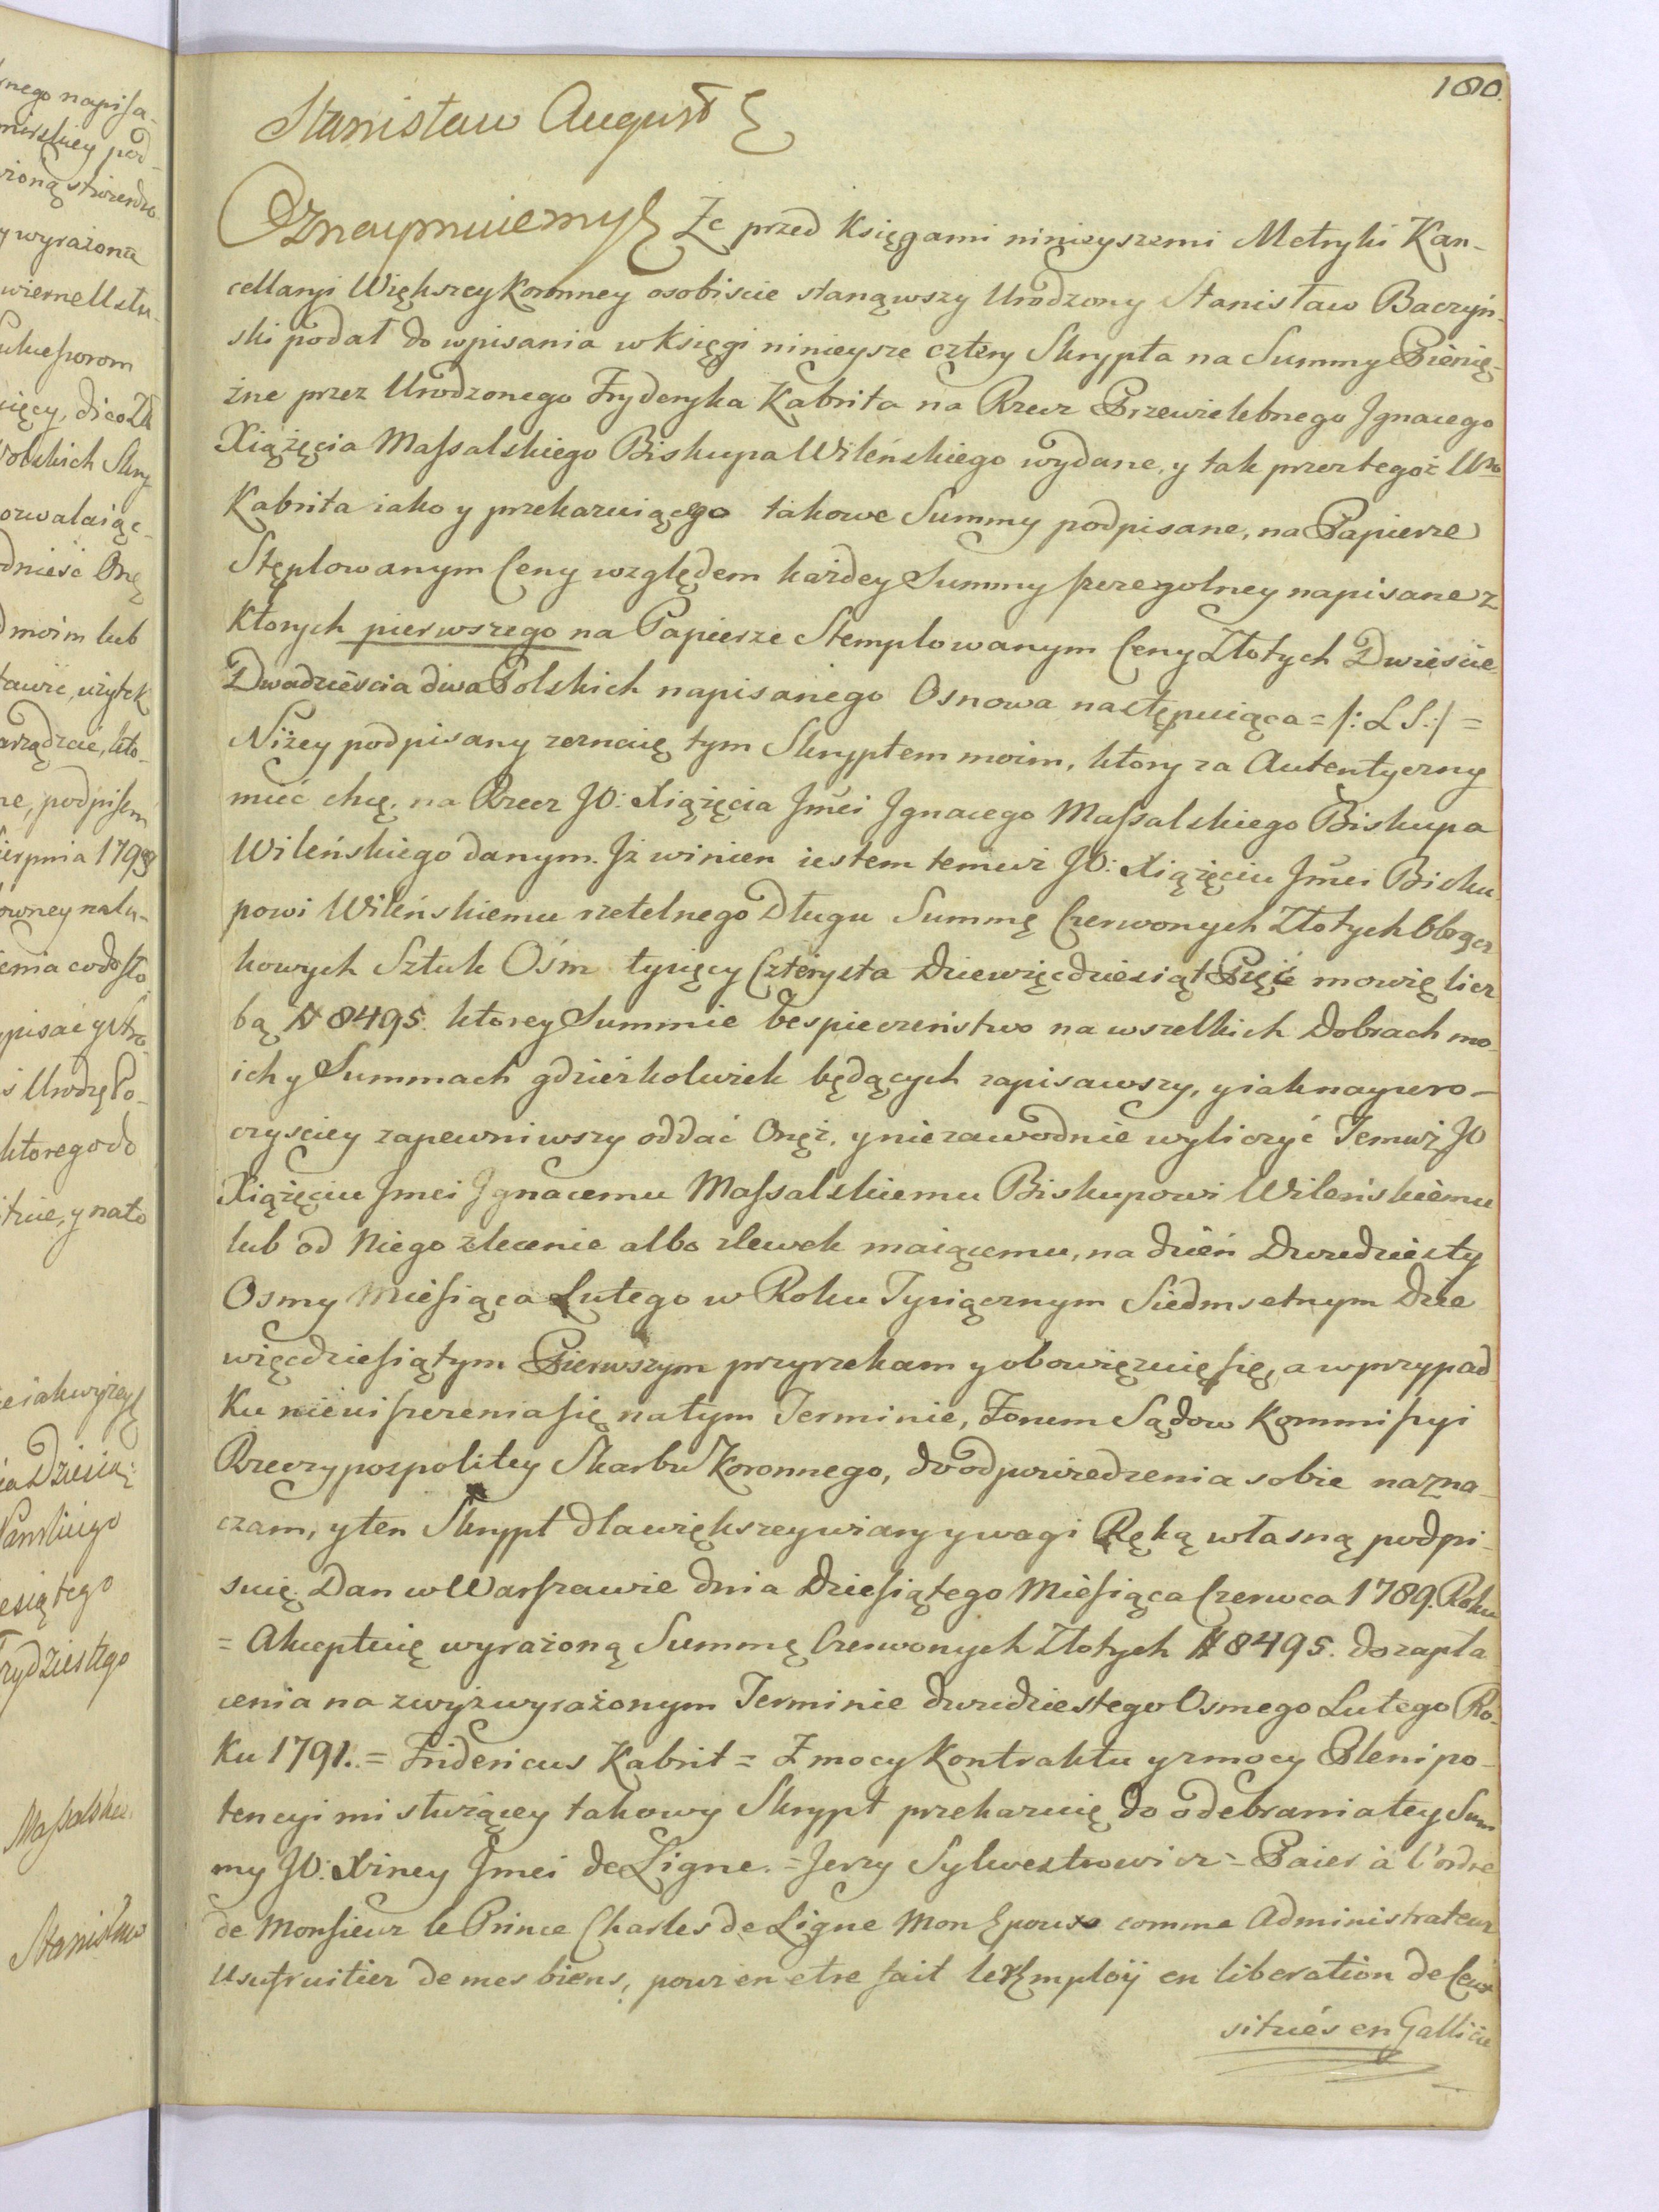 180.
Stanisław August
Oznaymuiemy Że przed Księgami ninieyszemi Metryki Kan-
cellaryi Większey Koronney osobiscie stanąwszy Urodzony Stanisław Baczyń-
ski podał do wpisania w Księgi ninieysze cztery Skrypta na Summy Pienię-
żne przez Urodzonego Fryderyka Kabrita na Rzecz Przewielebnego Jgnacego
Xiążęcia Maſsalskiego Biskupa Wileńskiego wydane, y tak przez tegoż Uro
Kabrita iako y przekazuiącego takowe Summy podpisane, na Papierze
Stęplowanym Ceny względem każdey Summy szczegolney napisane z
Ktorych pierwszego na Papierze Stemplowanym Ceny Złotych Dwiescie
Dwadziescia dwa Polskich napisanego Osnowa następuiąca = /: L S :/ =
Niżey podpisany zeznaię tym Skryptem moim, ktory za Autentyczny
mieć chcę, na Rzecz JO: Xiążęcia Jmci Jgnacego Maſsalskiego Biskupa
Wileńskiego danym. Jż winien iestem temuż JO: Xiążęciu Jmci Bisku
powi Wileńskiemu rzetelnego Długu Summę Czerwonych Złotych Obrącz
kowych Sztuk Ośm tysięcy Czterysta Dziewięcdziesiąt Pięć mowię licz
bą # 8495. ktorey Summie bespieczeństwo na wszelkich Dobrach mo
ich y Summach gdzieżkolwiek będących zapisawszy, y iak nayuro-
czyściey zapewniwszy oddać Onęż, y niezawodnie wyliczyć Temuż JO
Xiążęciu Jmci Jgnacemu Maſsalskiemu Biskupowi Wileńskiemu
lub od Niego zlecenie albo zlewek maiącemu, na dzień Dwudziesty
Osmy Mieſiąca Lutego w Roku Tysiącznym Siedmsetnym Dzie
więcdzieſiątym Pierwszym przyrzekam y obowięzuię się, a w przypad
Ku nieuiszczenia się na tym Terminie, Forum Sądow Kommiſsyi
Rzeczypospolitey Skarbu Koronnego, do odpowiedzenia sobie nazna-
czam, y ten Skrypt dla większey wiary y wagi Ręką własną podpi-
suię. Dan w Warszawie dnia Dzieſiątego Mieſiąca Czerwca 1789. Roku
= Akceptuię wyrażoną Summę Czerwonych Złotych # 8495. do zapła
cenia na zwyż wyrażonym Terminie dwudziestego Osmego Lutego Ro-
Ku 1791. = Fridericus Kabrit = Z mocy Kontraktu y z mocy Plenipo-
tencyi mi służącey takowy Skrypt przekazuię do odebrania tey Sum
my JO: Xżney Jmci de Ligne. = Jerzy Sylwestrowicz = Paier à l'ordre
de Monſieur le Prince Charles de Ligne Mon Epoux comme Administrateur
Usufruitier de mes biens, pour en etre fait le Employ en liberation de Ceux
situés en Gallicie